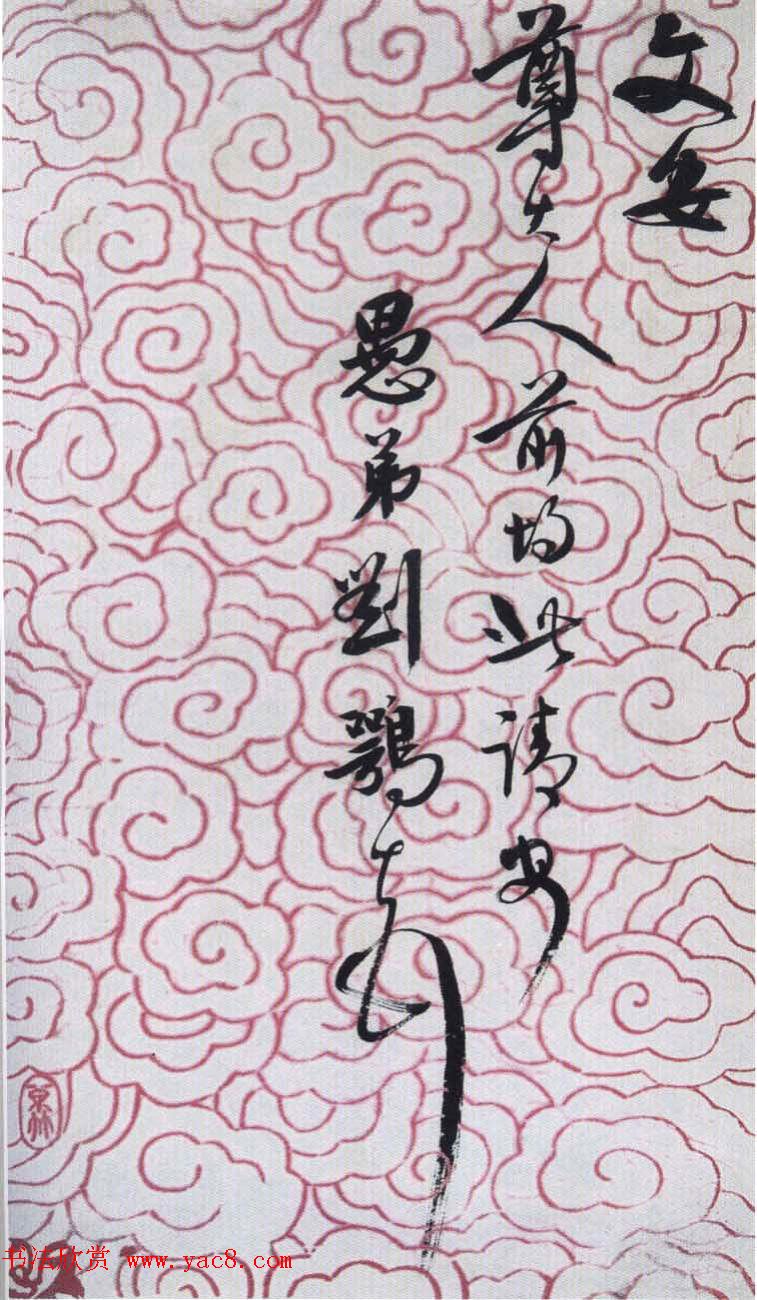 文安
尊大人前均此請安
愚弟劉鶚
书法欣赏 www.yac8.com